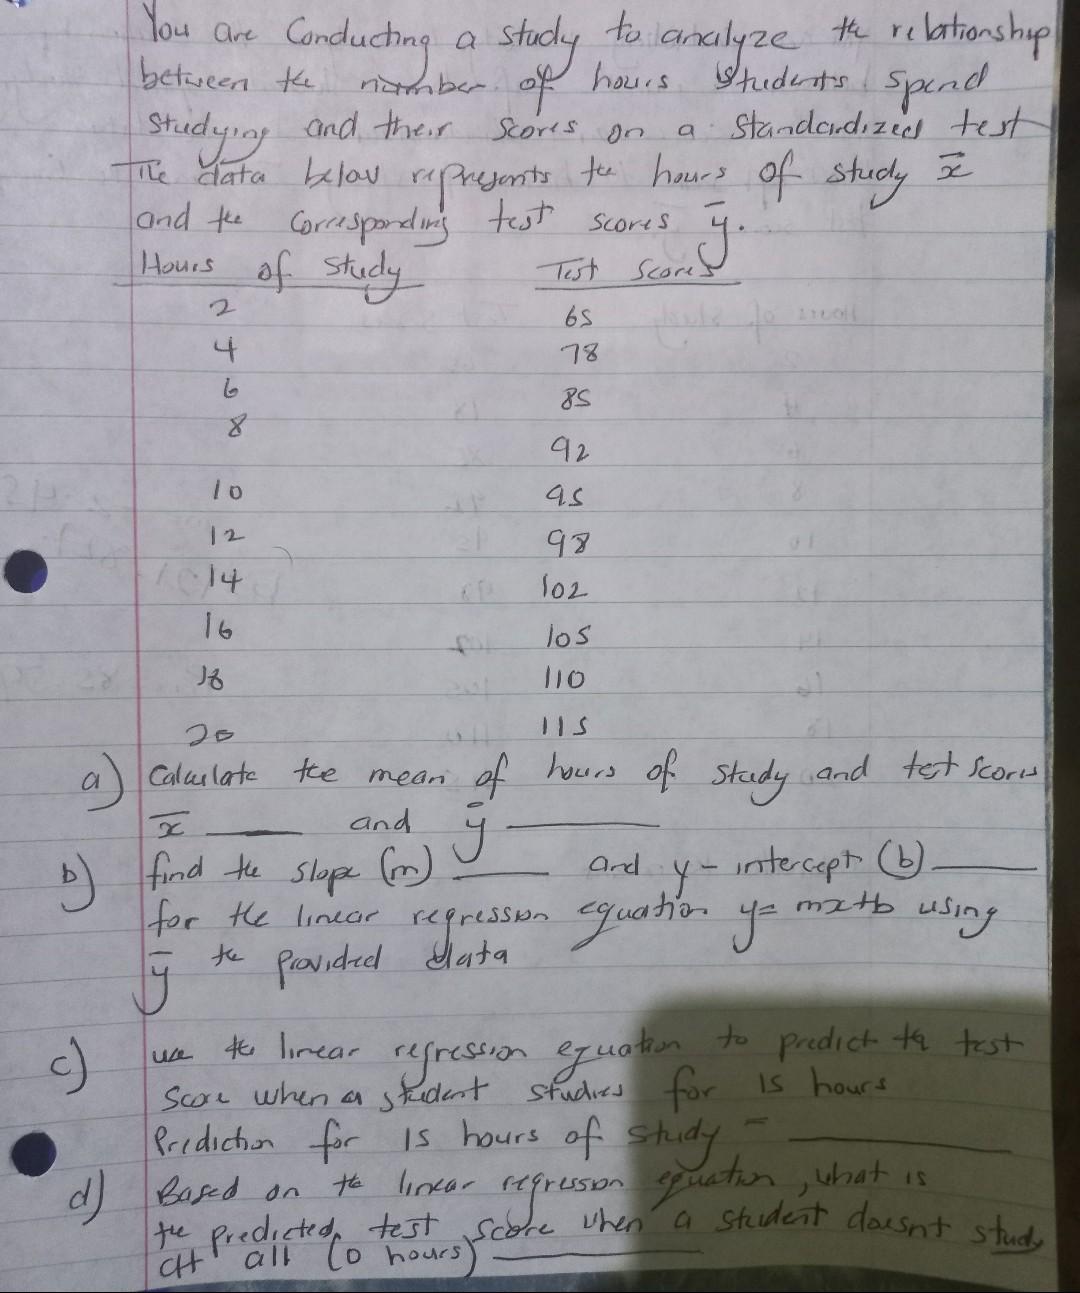 You are Conducting a study to analyze the relationship
between the number of hours students spend
studying and their scores on a standardized test
The data below represents the hours of study x̄
and the corresponding test scores ȳ.
Hours of study Test Scores
2 65
4 78
6 85
8 92
10 95
12 98
14 102
16 105
18 110
20 115
a) Calculate the mean of hours of study and test scores
x̄ ____ and ȳ ____
b) find the slope (m) ____ and y-intercept (b) ____
for the linear regression equation y= mx+b using
ȳ the provided data
c) use the linear regression equation to predict the test
Score when a student studies for 15 hours
Prediction for 15 hours of study = ____
d) Based on the linear regression equation, what is
the predicted test score when a student doesnt study
at all (0 hours) ____